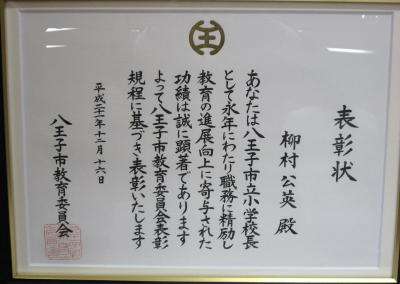 表彰状
柳村公英殿
あなたは八王子市立小学校長
として永年にわたり職務に精励し
教育の進展向上に寄与された
功績は誠に顕著であります
よって八王子市教育委員会表彰
規程に基づき表彰いたします
平成二十一年十二月十六日
八王子市教育委員会